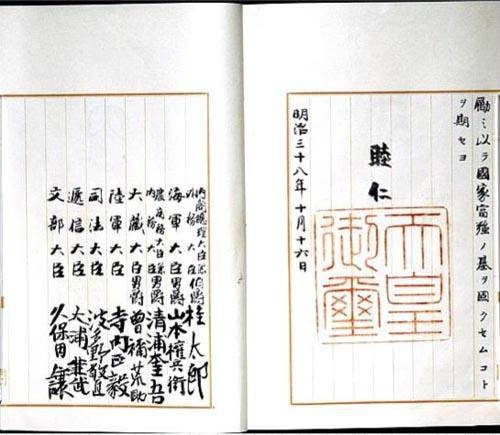 勵ミ以テ國家富强ノ基ヲ固クセムコト
ヲ期セヨ
睦仁
天皇御璽
明治三十八年十月十六日
內閣總理大臣兼
外務大臣伯爵桂太郎
海軍大臣男爵山本權兵衞
農商務大臣兼
內務大臣男爵清浦奎吾
大藏大臣男爵曾禰荒助
陸軍大臣寺內正毅
司法大臣波多野敬直
遞信大臣大浦兼武
文部大臣久保田讓